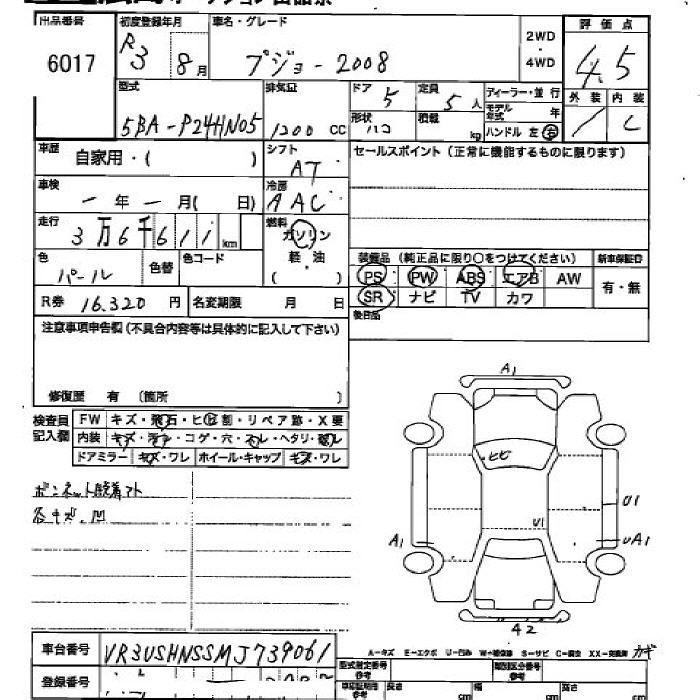 出品番号
6017
初度登録年月
R3 8月
車名・グレード
プジョー2008
2WD
・
4WD
評価点
4.5
外装 内装
/ C
型式
5BA-P24HN05
排気証
1200 CC
ドア
5
定員
5人
形状
ハコ
積載
kg
ディーラー・並行
モデル年式 年
ハンドル 左・右
車歴
自家用・( )
シフト
AT
セールスポイント（正常に機能するものに限ります）
車検
ー年ー月( 日)
冷房
AAC
走行
3万6千611km
燃料
ガソリン
軽・油
( )
色
パール
色替
色コード
装備品（純正品に限り○をつけてください）
新車保証書
PS PW ABS エアB AW
SR ナビ TV カワ
有・無
後日品
R券 16.320円
名変期限 月 日
注意事項申告欄（不具合内容等は具体的に記入して下さい）
修復歴 有 （箇所 ）
検査員
記入欄
FW キズ・飛石・ヒビ割・リペア跡・X要
内装 キズ・汚れ・コゲ・穴・スレ・ヘタリ・
ドアミラー キズ・ワレ ホイール・キャップ キズ・ワレ
ボンネット アト
各キズ・凹
A1
・ヒビ
U1
U1
A1
UA1
42
車台番号
VR3USHNSSMJ739061
A-キズ E-エクボ U-凹み W-補修跡 S-サビ C-腐食 XX-交換済
カギ
登録番号
型式指定番号
参考
類別区分番号
参考
長さ cm
幅 cm
高さ cm